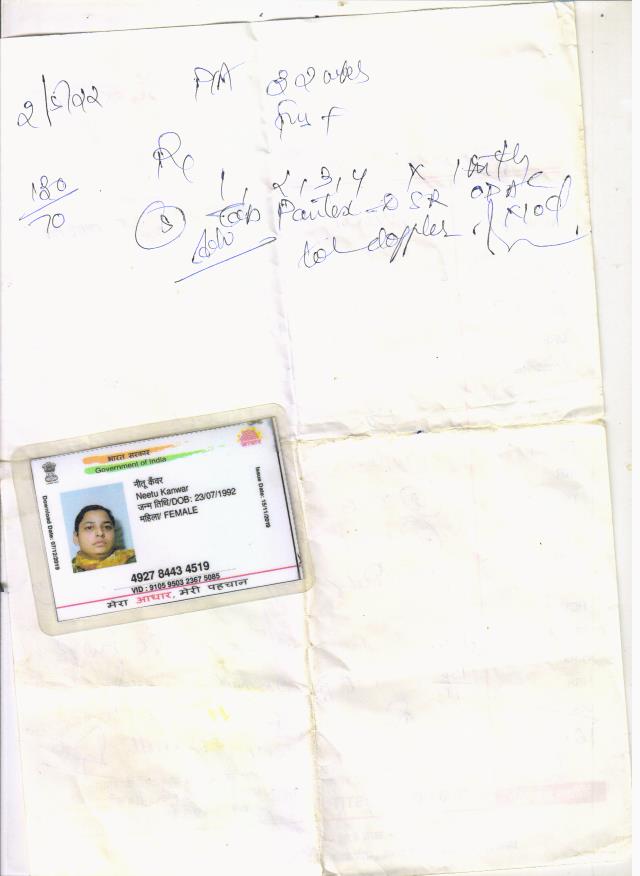 P/A 32 weeks
120/70
Rx
1, 2, 3, 4 X 1 month
5 Cap Pantex-DSR OD AC X10d
Adv col doppler
भारत सरकार
Government of India
नीतू कँवर
Neetu Kanwar
जन्म तिथि/DOB: 23/07/1992
महिला/ FEMALE
Download Date: 07/12/2019
Issue Date: 15/11/2019
4927 8443 4519
VID : 9105 9503 2367 5085
मेरा आधार, मेरी पहचान